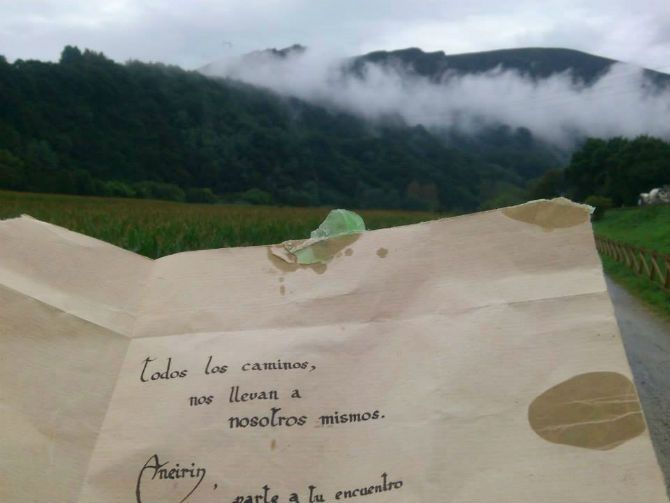 todos los caminos,
nos llevan a
nosotros mismos.
Aneirin,
parte a tu encuentro